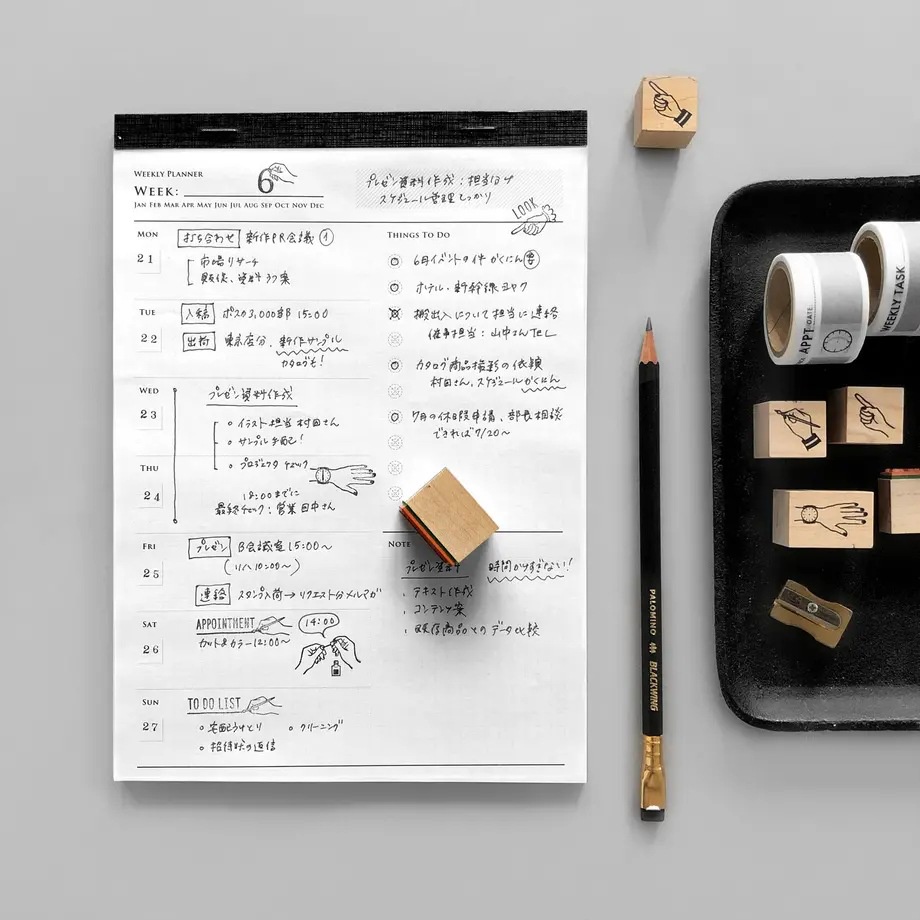 WEEKLY PLANNER
WEEK: 6
JAN FEB MAR APR MAY JUN JUL AUG SEP OCT NOV DEC
プレゼン資料作成:担当分け
スケジュール管理しっかり
LOOK
MON
21
打ち合わせ 新作PR会議 ①
市場リサーチ
販促、資料
TUE
22
入稿 ポスター3,000部 15:00
出荷 東京店分、新作サンプル
カタログも!
WED
23
プレゼン資料作成
イラスト担当 村田さん
サンプル手配!
プロジェクタ チェック
THU
24
18:00までに
最終チェック:営業 田中さん
FRI
25
プレゼン B会議室 15:00〜
(リハ 10:00〜)
連絡 スタンプ入荷→リクエスト分メルマガ
SAT
26
APPOINTMENT
14:00
カット&カラー 12:00〜
SUN
27
TO DO LIST
宅配うけとり
クリーニング
招待状の返信
THINGS TO DO
6月イベントの件 かくにん
ホテル・新幹線ヨヤク
搬出入について担当に連絡
催事担当:山中さんTEL
カタログ商品撮影の依頼
村田さん、スケジュールかくにん
7月の休日申請、部長相談
できれば7/20〜
NOTE
プレゼン資料 時間かけすぎない!
テキスト作成
コンテンツ案
既存商品とのデータ比較
PALOMINO BLACKWING
APPT DATE
WEEKLY TASK